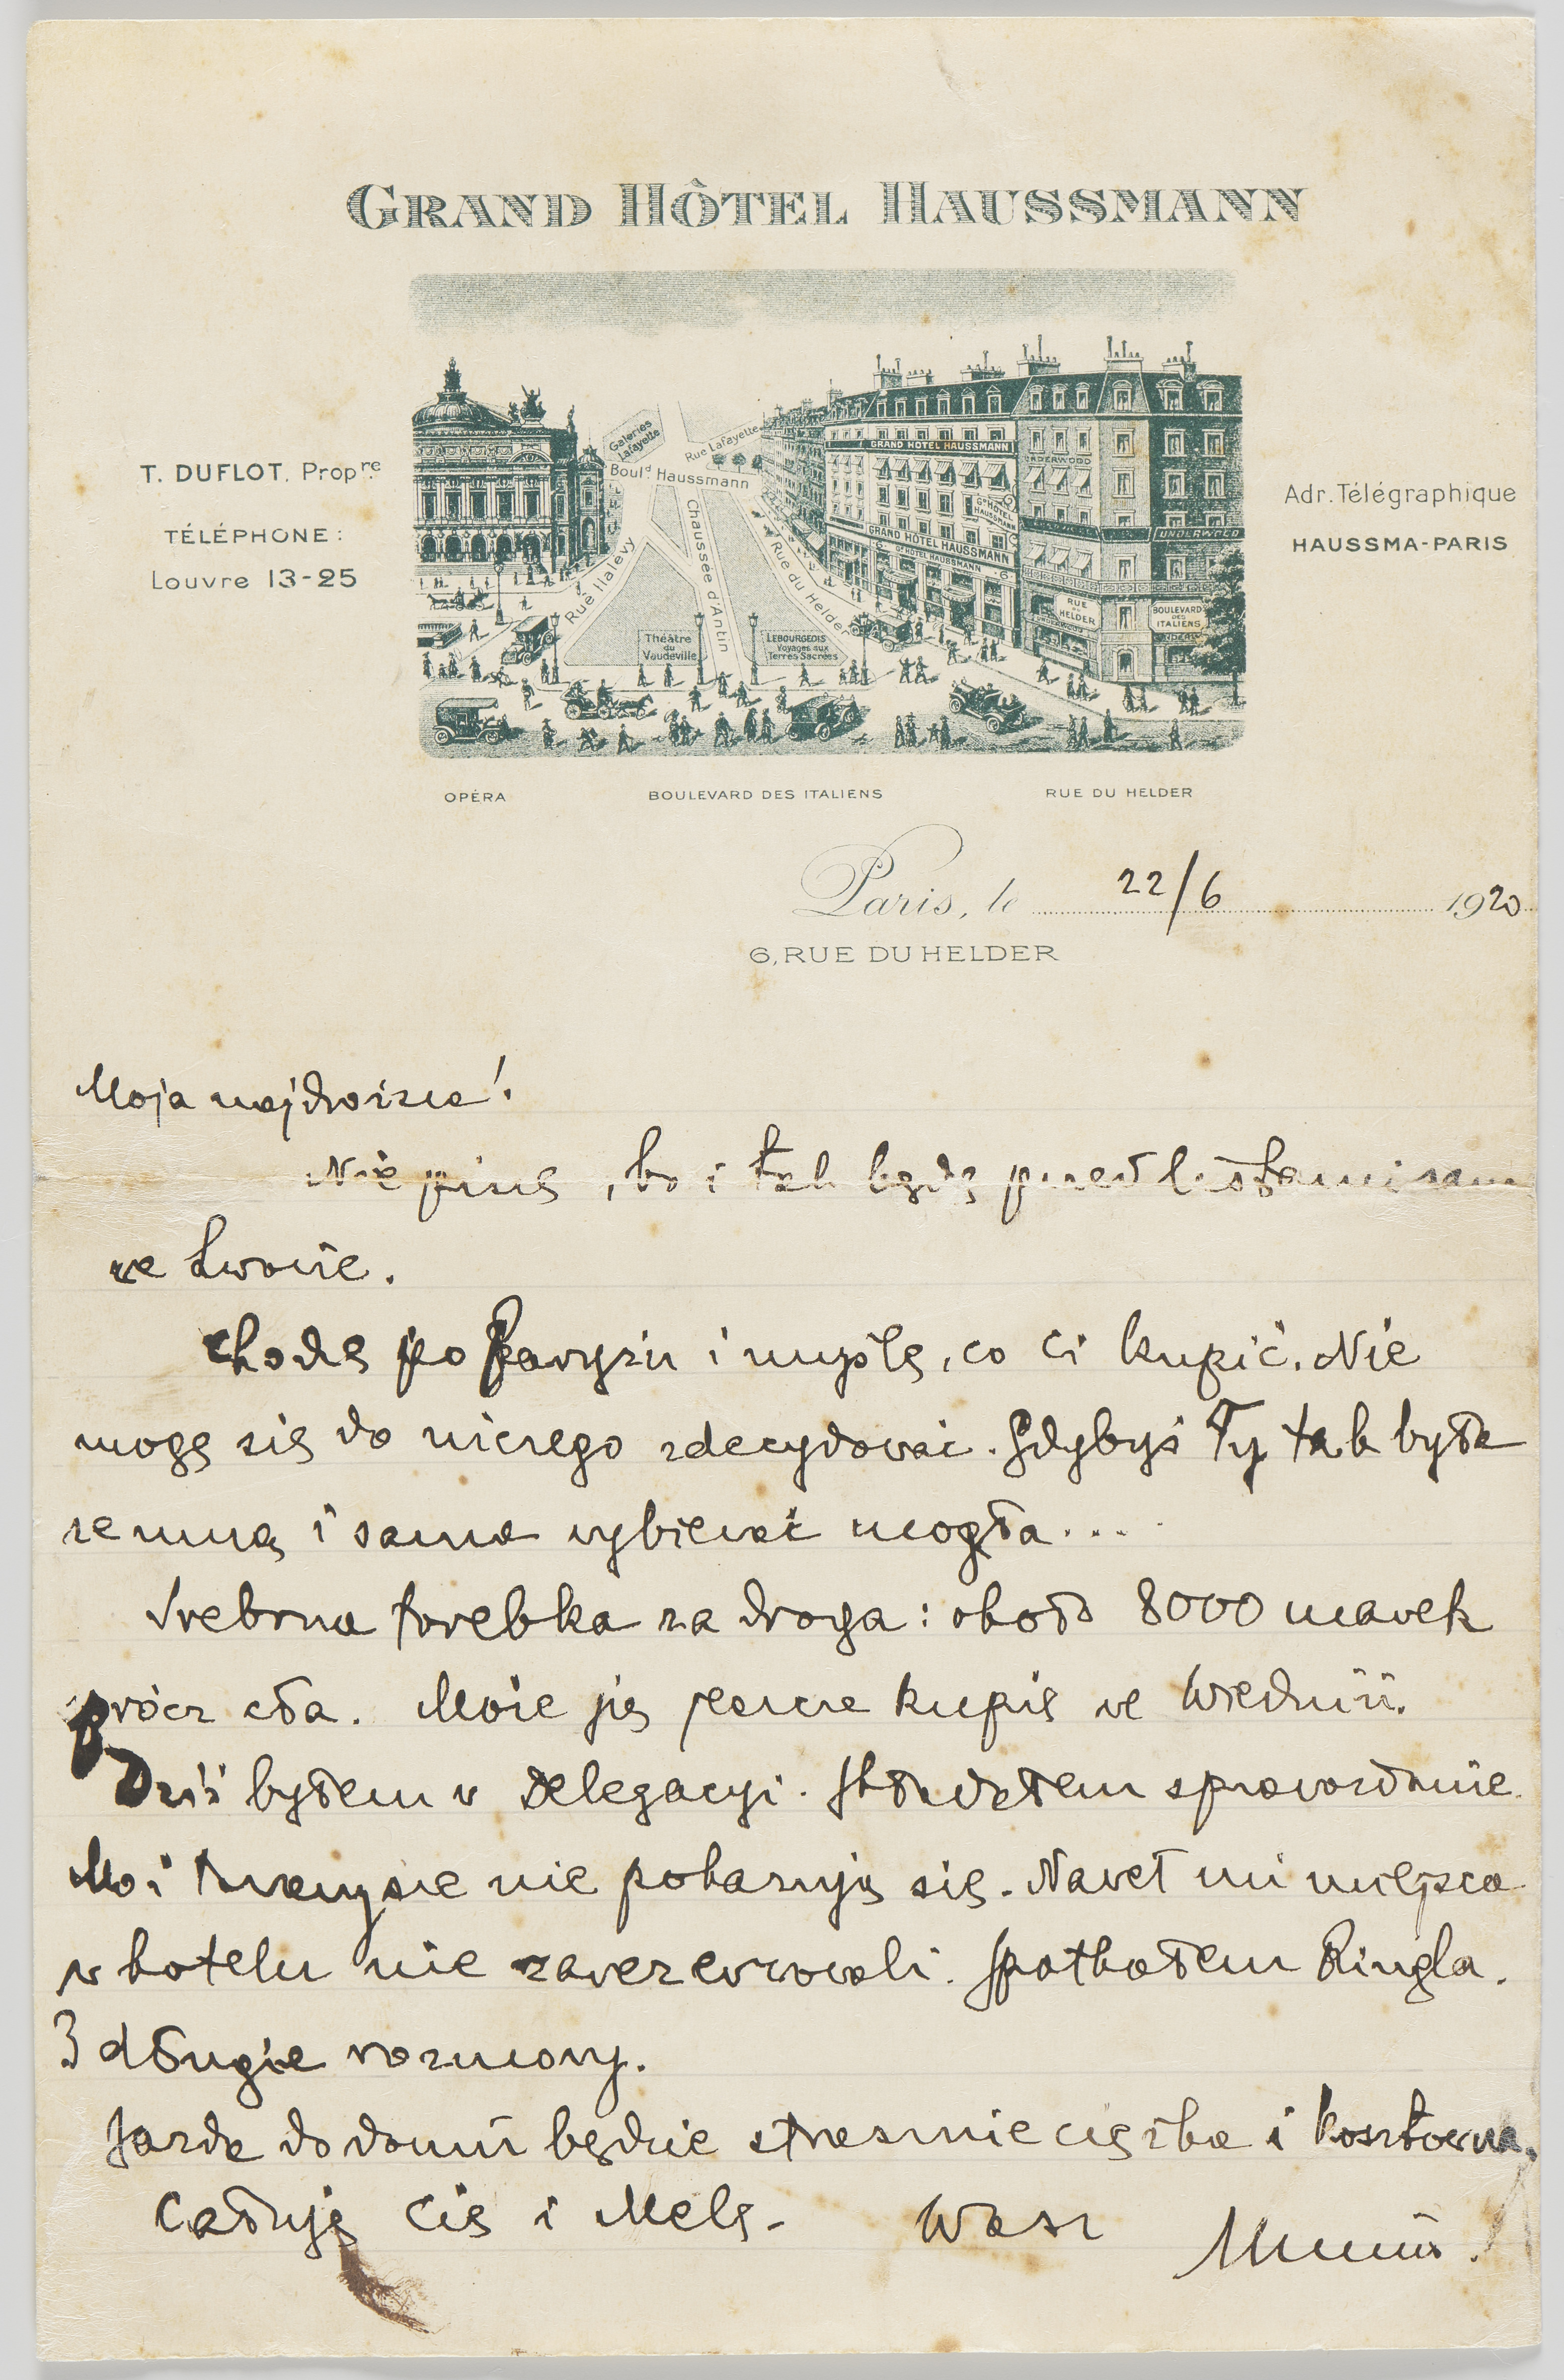 GRAND HÔTEL HAUSSMANN
T. DUFLOT, Propre
TÉLÉPHONE :
Louvre 13-25
Adr. Télégraphique
HAUSSMA-PARIS
Galeries
Lafayette
Rue Lafayette
Bould Haussmann
Rue Halevy
Chaussée d'Antin
Rue du Helder
Théâtre
du
Vaudeville
LEBOURGEOIS
Voyages aux
Terres Sacrées
GRAND HOTEL HAUSSMANN
UNDERWOOD
Gd HOTEL
HAUSSMANN
GRAND HÔTEL HAUSSMANN
Gd HOTEL HAUSSMANN
6
UNDERWOOD
RUE
DU
HELDER
BOULEVARD
DES
ITALIENS
OPÉRA
BOULEVARD DES ITALIENS
RUE DU HELDER
Paris, le 22/6 1920
6, RUE DU HELDER
Moja najdroższa!
Nie piszę, bo i tak będę przed listami sam
we Lwowie.
Chodzę po Paryżu i myślę, co Ci kupić. Nie
mogę się do niczego zdecydować. Gdybyś Ty tak była
ze mną i sama wybierać mogła....
Srebrna torebka za droga: około 8000 marek
prócz cła. Może ją jeszcze kupię we Wiedniu.
Dziś byłem w Delegacyi. Składałem sprawozdanie.
Moi nie pokazują się. Nawet mi miejsca
w hotelu nie zarezerwowali. Spotkałem Ringla.
3 długie rozmowy.
Jazda do domu będzie strasznie ciężka i kosztowna.
Całuję Cię i Melę.
Wasz